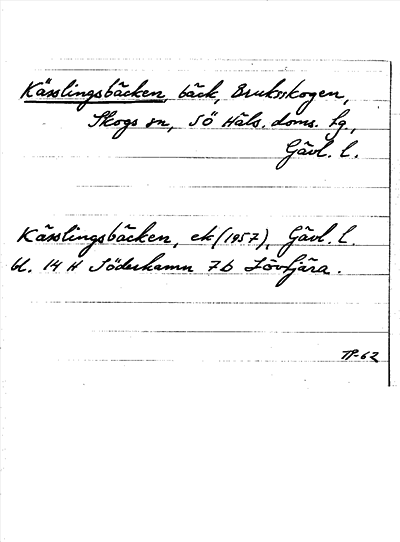 Kässlingsbäcken, bäck, Bruksskogen,
Skogs sn, Sö Häls. doms. lg.,
Gävl. l.
Kässlingsbäcken, ek (1957), Gävl. l.
bl. 14 H Söderhamn 7b Lövtjära.
TP-62